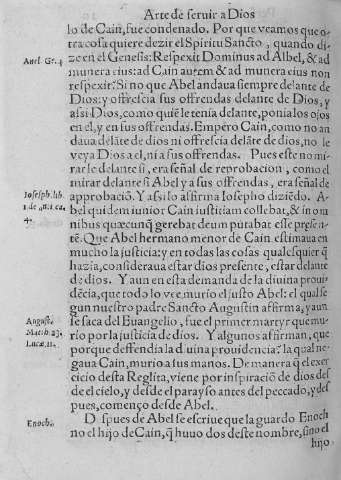 Arte de seruir a Dios
lo de Cain, fue condenado. Por que veamos que o-
tra cosa quiere dezir el Spiritu Sancto, quando di-
Auel. Ge. 4 ze en el Genesis: Respexit Dominus ad Albel, & ad
munera eius: ad Cain autem & ad munera eius non
respexit: Si no que Abel andaua siempre delante de
Dios: y offrescia sus offrendas delante de Dios, y
assi Dios, como quiē le tenía delante, ponia los ojos
en el, y en sus offrendas. Empéro Cain, como no an
daua delāte de dios ni offrescia delāte de dios, no le
veya Dios a el, ni a sus offrendas. Pues este no mi-
rarle delante si, era señal de reprobacion, como el
mirar delante si Abel y a sus offrendas, era señal de
Iosesph. lib. approbació. Y assi lo affirma Iosepho diziēdo. A-
1 de anti. ca. bel quidem iunior Cain iusticiam collebat, & in om
4. nibus quæcunq̃ gerebat deum putabat esse presen-
tē. Que Abel hermano menor de Cain estimaua en
mucho la justicia: y en todas las cosas qualesquier q̃
hazia, consideraua estar dios presente, estar delante
de dios. Y aun en esta demanda de la diuina proui-
dēcia, que todo lo vee, murio el justo Abel: el qual se
gun nuestro padre Sancto Augustin affirma, y aun
Augusti. se saca del Euangelio, fue el primer martyr que mu-
Matth. 23. rio por la justicia de dios. Y algunos affirman, que
Lucæ, 11. porque deffendia la diuina prouidencia: la qual ne-
gaua Cain, murio a sus manos. De manera q̃ el exer
cicio desta Reglita, viene por inspiració de dios des
de el cielo, y desde el parayso antes del peccado, y des
pues, començo desde Abel.
Enoch. D spues de Abel se escriue que la guardo Enoch
no el hijo de Cain, q̃ huuo dos deste nombre, sino el
hijo